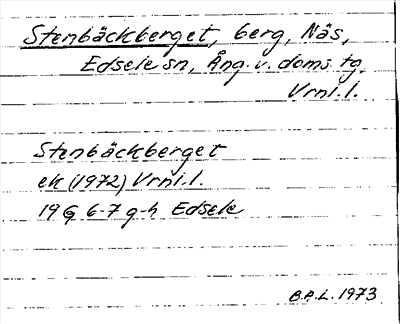 Stenbäckberget, berg, Näs,
Edsele sn, Ång. v. doms. tg
Vrnl. l.
Stenbäckberget
ek (1972) Vrnl. l.
19 G 6-7 g-h Edsele
B.P.L. 1973